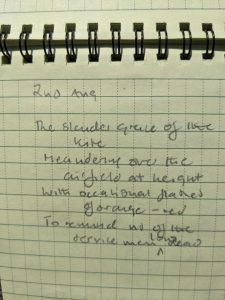 2nd Aug
The slender grace of the
kite
Meandering over the
airfield at height
With occasional flashes
of orange-red
To remind us of the
service men long dead